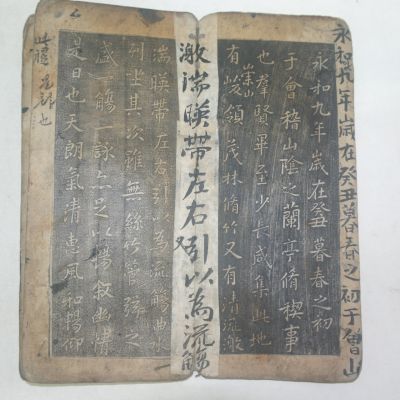 永和九年歲在癸丑暮春之初于會山
永和九年歲在癸丑暮春之初
于會稽山陰之蘭亭脩稧事
也羣賢畢至少長咸集此地
崇山
有峻領茂林脩竹又有清流激
激湍暎帶左右引以為流觴
湍暎帶左右引以為流觴曲水
列坐其次雖無絲竹管弦之
盛一觴一詠亦足以暢敘幽情
是日也天朗氣清惠風和暢仰